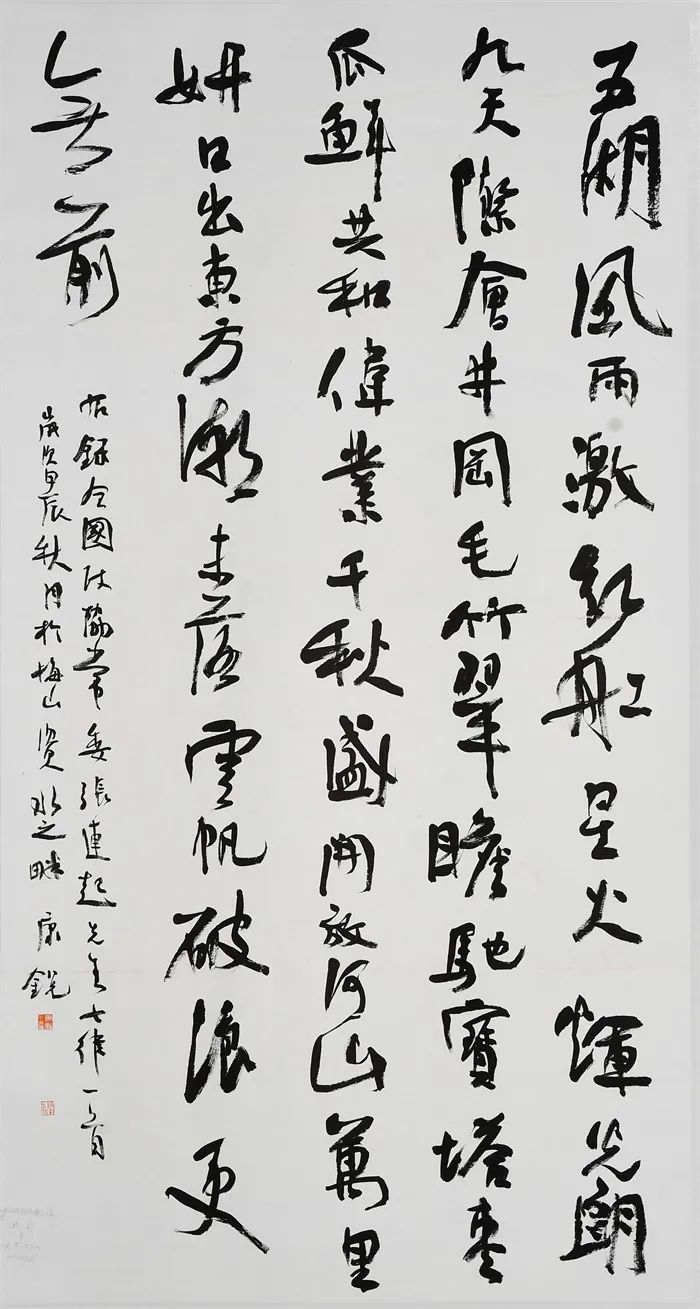 五湖風雨激紅船星火輝光朗
九天際會井岡毛竹翠瞻馳寶塔棗
瓜鮮共和偉業千秋盛開放河山萬里
妍日出東方潮未落雲帆破浪更
無前
右錄全國政協常委張連起先生七律一首
歲次甲辰秋月於梅山資水之畔 康銳